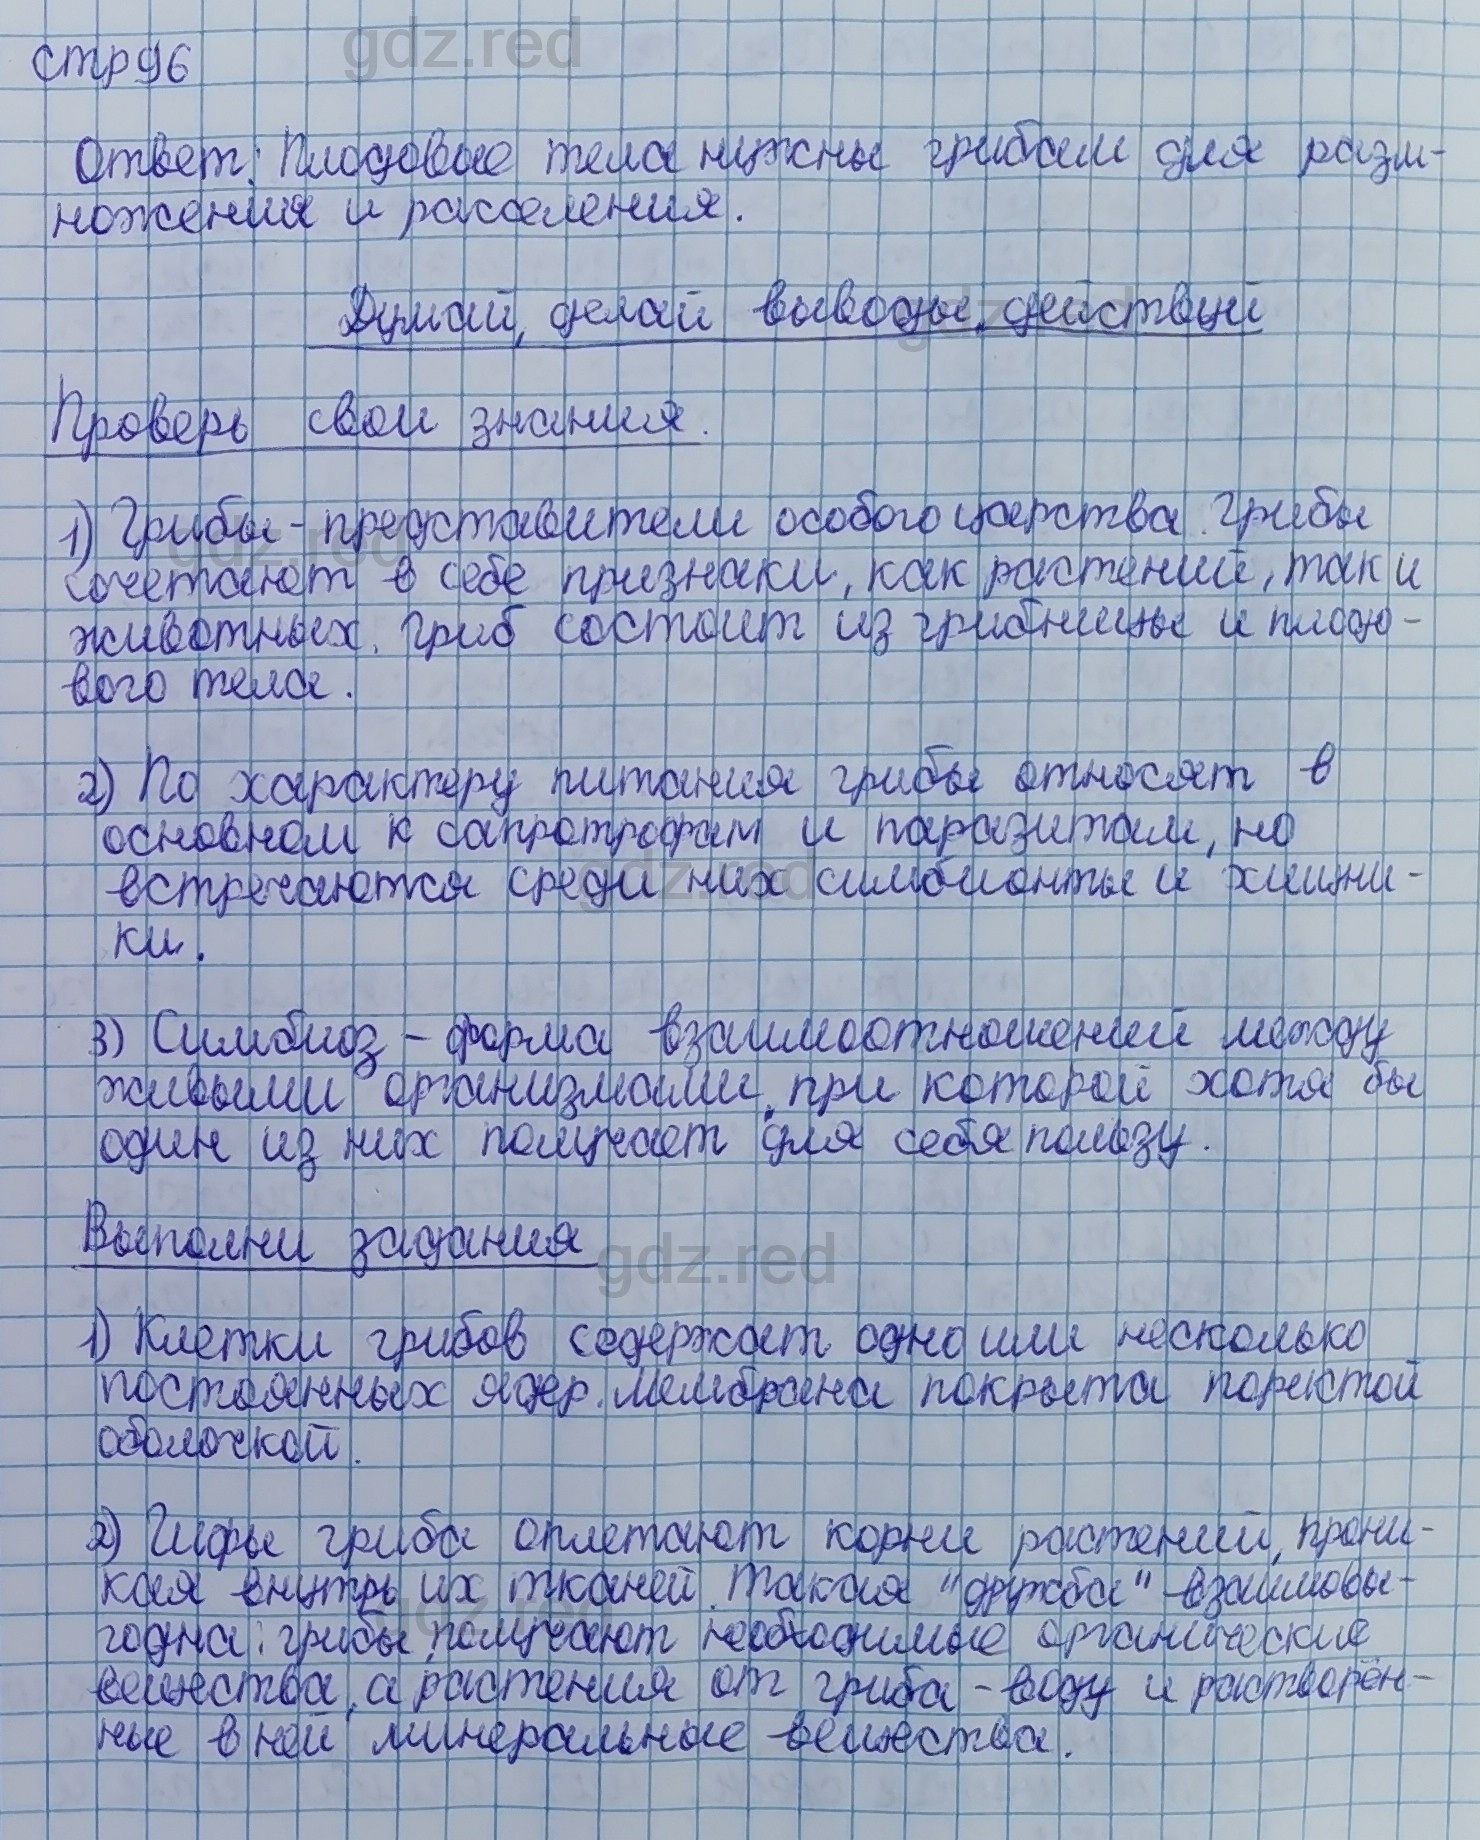 gdz.red
стр 96
Ответ: Плодовые тела нужны грибам для разм-
ножения и расселения.
Думай, делай выводы, действуй
gdz.red
Проверь свои знания.
1) Грибы - представители особого царства. Грибы
gdz.red
сочетают в себе признаки, как растений, так и
животных. Гриб состоит из грибницы и плодо-
вого тела.
2) По характеру питания грибы относят в
основном к сапротрофам и паразитам, но
встречаются среди них симбионты и хищни-
gdz.red
ки.
3) Симбиоз - форма взаимоотношений между
живыми организмами, при которой хотя бы
один из них получает для себя пользу.
Выполни задания
gdz.red
1) Клетки грибов содержат одно или несколько
постоянных ядер. Мембрана покрыта пористой
оболочкой.
2) Гифы гриба оплетают корни растений, прони-
кая внутрь их тканей. Такая "дружба" взаимовы-
gdz.red
годна: грибы получают необходимые органические
вещества, а растения от гриба - воду и растворён-
ные в ней минеральные вещества.